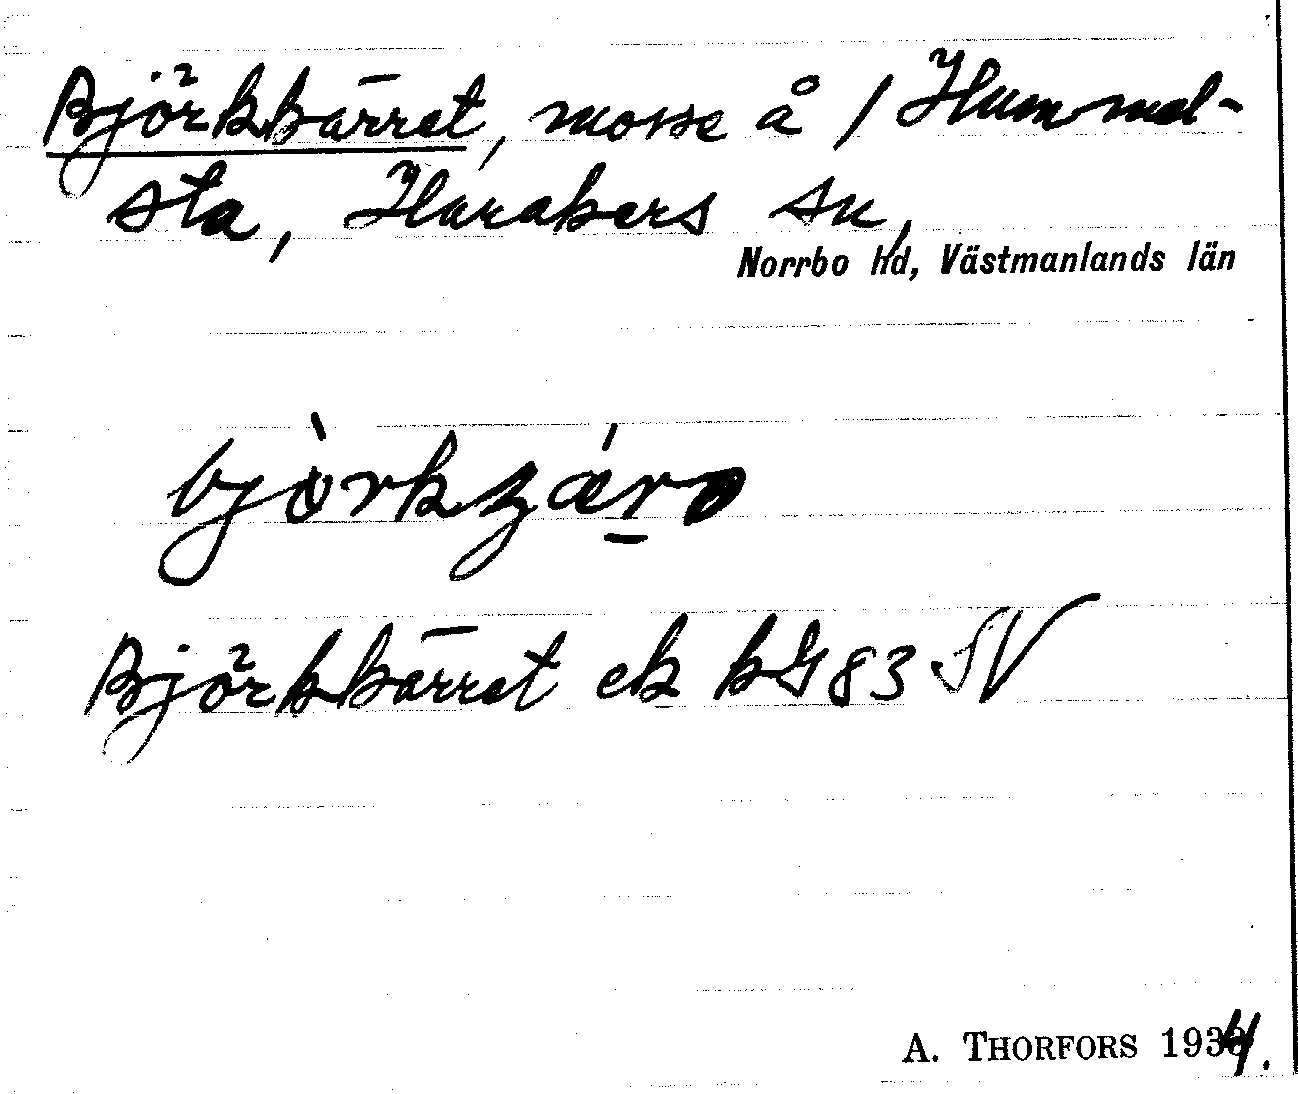 Björkkärret, mosse å / Hummel-
sta, Harakers sn,
Norrbo hd, Västmanlands län
Björkkärret ek kG 83 SV
A. THORFORS 1934.